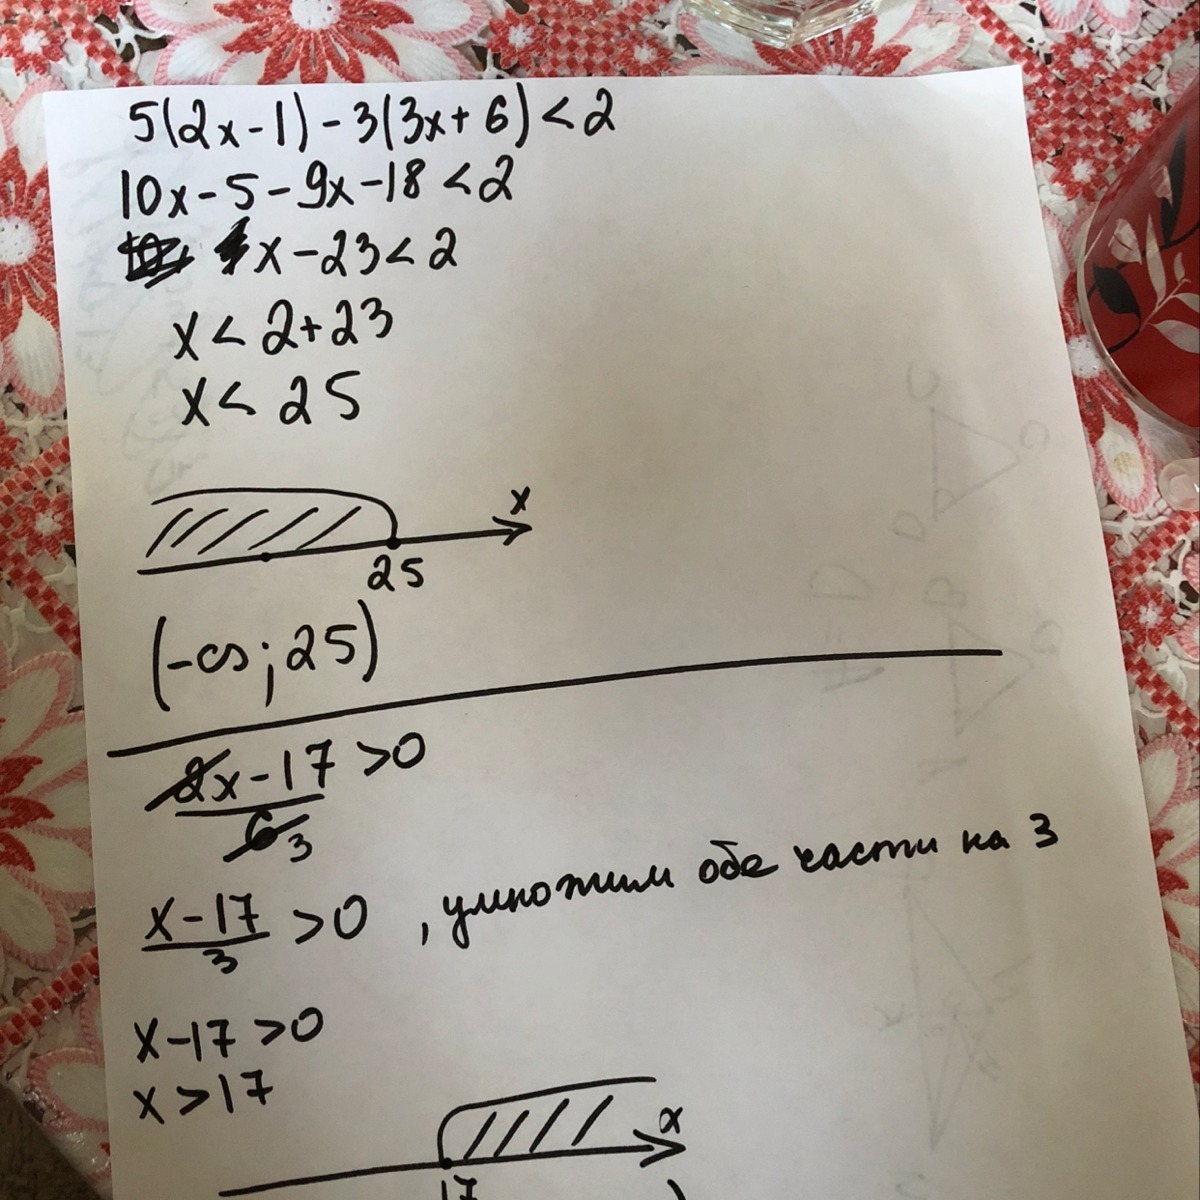 5(2x-1)-3(3x+6)<2
10x-5-9x-18<2
x-23<2
x<2+23
x<25
x
25
(-∞;25)
2x-17>0
6 3
x-17>0, умножим обе части на 3
3
x-17>0
x>17
x
17